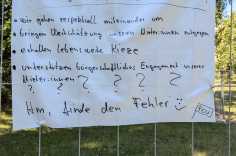 • wir gehen respektvoll miteinander um
• bringen Wertschätzung unseren Mieter:innen entgegen
• erhalten lebenswerte Kieze
• unterstützen bürgerschaftliches Engagement unserer
Mieter:innen ? ? ? ? ?
? ?
Hm, finde den Fehler